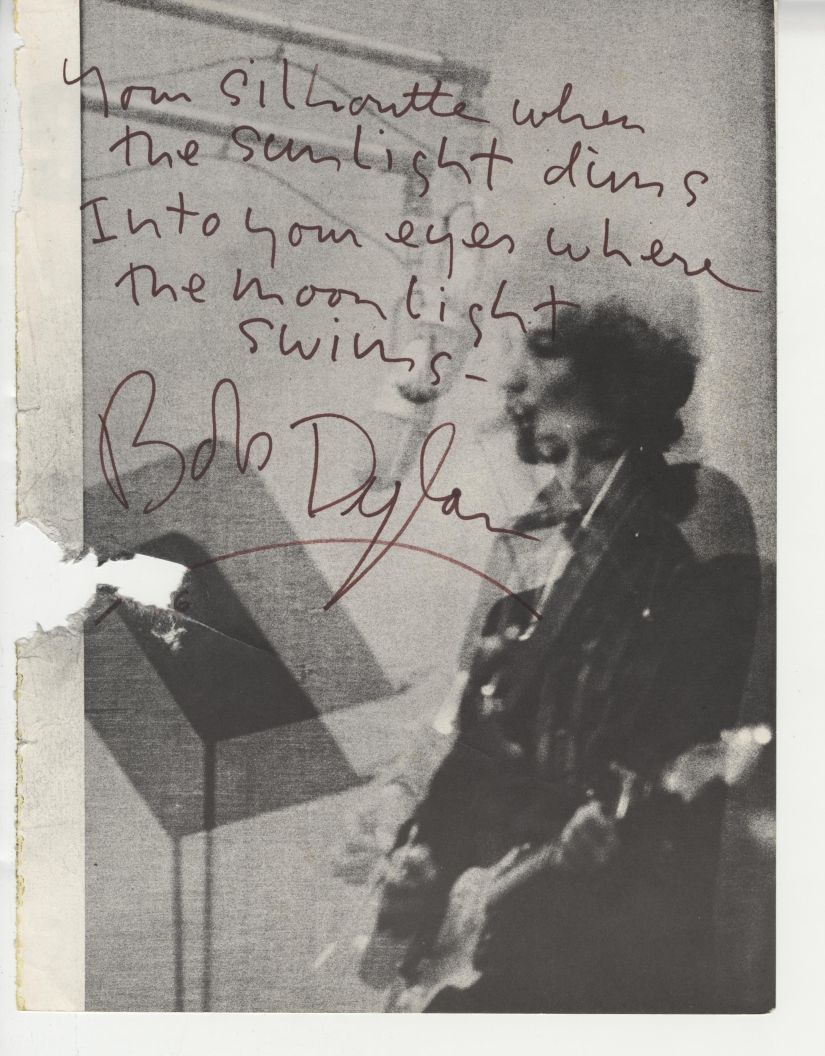 Your Silhoutte when
the Sunlight dims
Into your eyes where
the moonlight
swims-
Bob Dylan